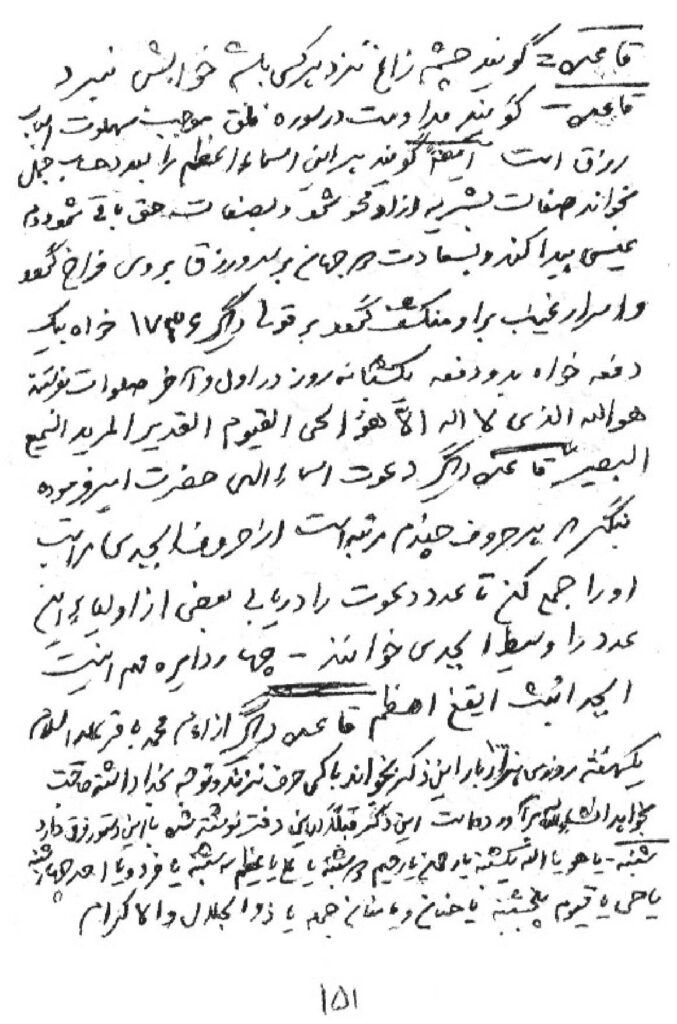 قاعده = گویند چشم زاغ نزد هر کسی باشد خوابش نبرد
قاعده - گویند مداومت در سوره فلق موجب سهولت اسباب
رزق است ایضا گویند هر این اسماء اعظم را بعدد حساب جمل
بخواند صفات بشریه از او محو شود و بصفات حق باقی شود و دم
عیسی پیدا کند و بسعادت هر جهان برسد و رزق بروی فراخ گردد
و اسرار غیب بر او منکشف گردد بر قولی دیگر ۱۷۳۶ خواه بیک
دفعه خواه بدو دفعه یکشبانه روز در اول و آخر صلوات بفرستد
هو الله الذی لا اله الا هو الحی القیوم القدیر المرید السمیع
البصیر قاعده دیگر دعوت اسماء الهی حضرت امیر فرموده
بنگر هر حروف چندم مرتبه است از حروف ابجدی مراتب
او را جمع کن تا عدد دعوت را دریابی بعضی از اولیاء این
عدد را وسیط ابجدی خوانند - چهار دایره مهم اینست
ابجد ابتث ایقغ اهطم قاعده دیگر از امام محمد باقر علیه السلام
یکهفته روزی هزار بار این ذکر بخواند با کسی حرف نزند و توجه بخدا داشته حاجت
بخواهد انشاءالله برآورده است این ذکر قبلا در این دفتر نوشته شده با این دستور فرق دارد
شنبه - یا هو یا الله یکشنبه یا رحمن یا رحیم دوشنبه یا علی یا عظیم سه شنبه یا فرد و یا احد چهارشنبه
یا حی یا قیوم پنجشنبه یا حنان و یا منان جمعه یا ذوالجلال والاکرام
۱۵۱